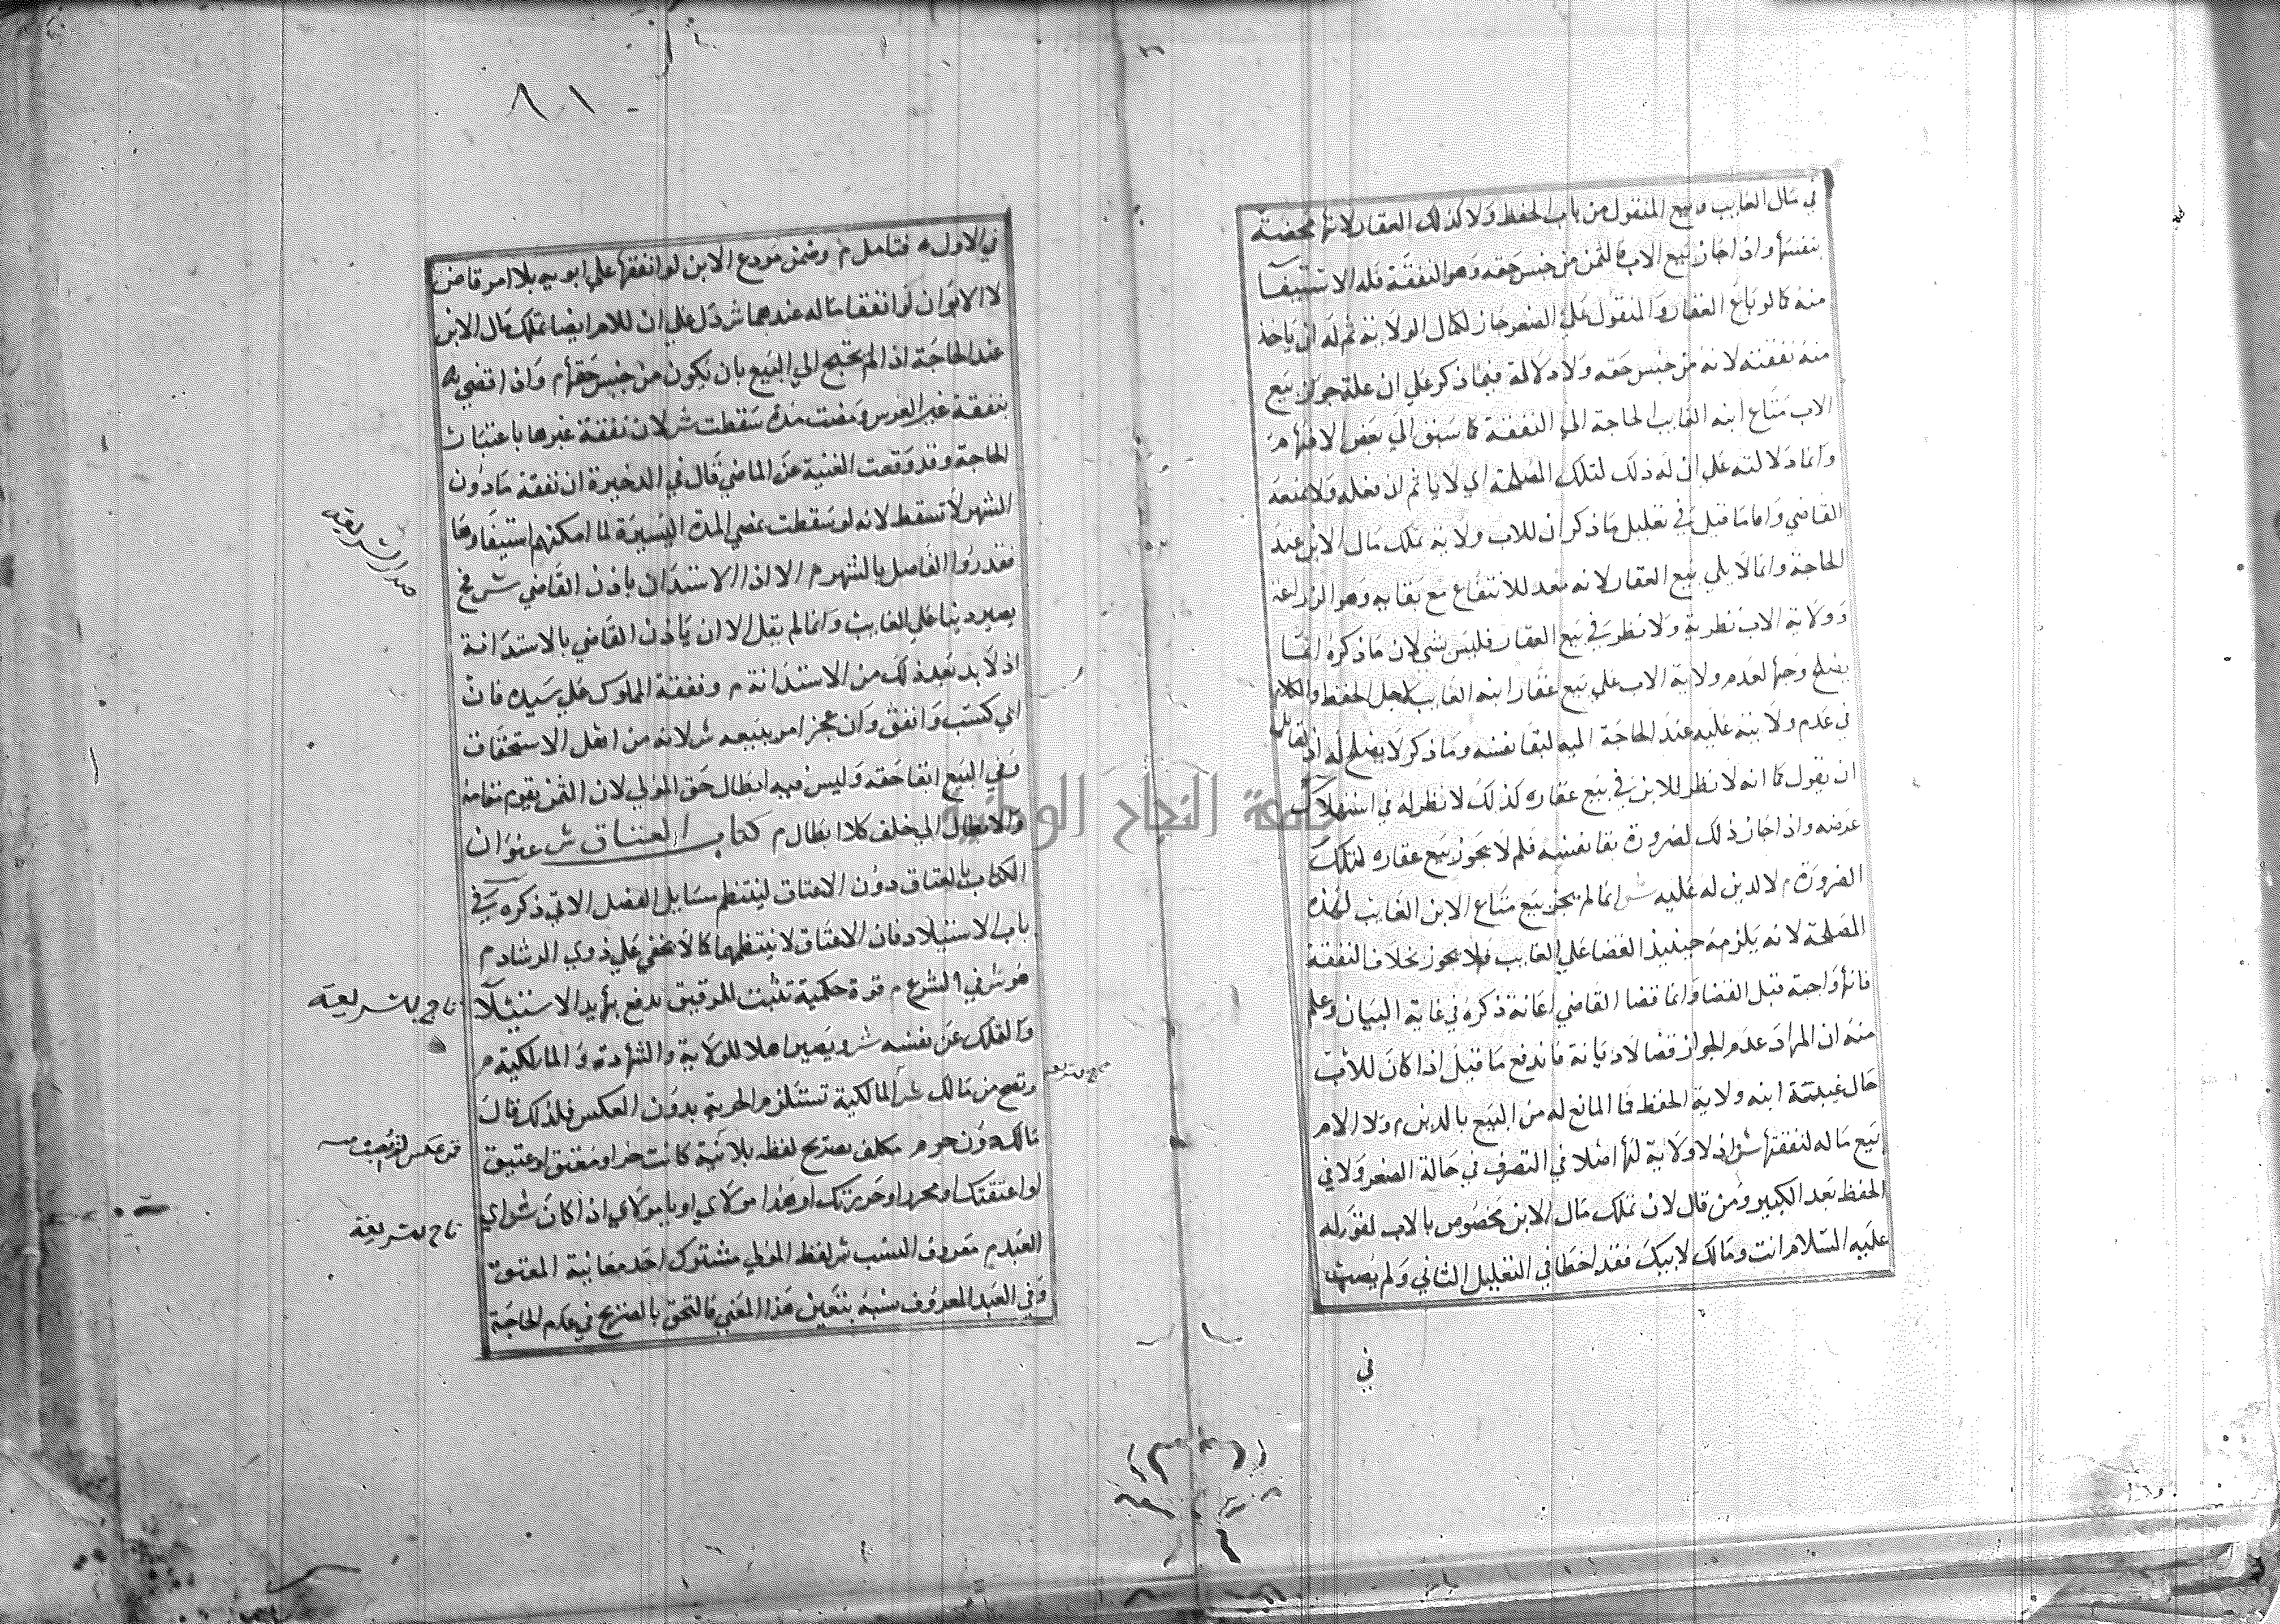 في مال الغايب وبيع المنقول من باب الحفظ ولا كذلك العقار لانها محصنة
بنفسها واذا جاز بيع الاب فالثمن من جنس حقه وهو النفقة فله الاستيفآ
منه كما لو باع العقار والمنقول على الصغير جاز لكمال الولاية ثم له ان ياخذ
منه نفقته لانه من جنس حقه ولا دلالة فيما ذكر علي ان علة جواز بيع
الاب متاع ابنه الغايب الحاجة الي النفقة كما سبق الي بعض الافهام
وانما دلالته علي ان له ذلك لتلك المصلحة اي لا ياثم ان فعله ولا يمنعه
القاضي واما ما قيل في تعليل ما ذكر ان للاب ولاية تملك مال الابن عند
الحاجة وانما لا يلي بيع العقار لانه معد للانتفاع مع بقايه وهو الزراعة
وولاية الاب نظرية ولا نظر في بيع العقار فليس بشي لان ما ذكره انما
يصلح وجها لعدم ولاية الاب علي بيع عقار ابنه الغايب لاجل الحفظ والكلام
في عدم ولايته عليه عند الحاجة اليه لبقا نفسه وما ذكر لا يصلح له اذ لقايل
ان يقول كما انه لا نظر للابن في بيع عقاره كذلك لا نظر له في استهلاك
عرضه واذا جاز ذلك لضرورة بقا نفسه فلم لا يجوز بيع عقاره لتلك
الضرورة م لا لدين له عليه ش انما لم يجز بيع متاع الابن الغايب لهذه
المصلحة لانه يلزمه حينيذ القضا علي الغايب فلا يجوز بخلاف النفقة
فانها واجبة قبل القضا وانما قضا القاضي اعانة ذكره في غاية البيان وعلم
منه ان المراد عدم الجواز قضا لا ديانة فاندفع ما قيل اذا كان للاب
حال غيبتة ابنه ولاية الحفظ فما المانع له من البيع بالدين م ولا الام
بيع ماله لنفقتها ش اذ لا ولاية لها اصلا في التصرف في حالة الصغر ولا في
الحفظ بعد الكبير ومن قال لان تملك مال الابن مخصوص بالاب لقوله
عليه السلام انت ومالك لابيك فقد اخطا في التعليل الثاني ولم يصب
في
٨١
في الاول فتامل م وضمن مودع الابن لو انفقها علي ابويه بلا امر قاض
لا الابوان لو انفقا ماله عندهما ش دل علي ان للام ايضا تملك مال الابن
عند الحاجة اذا لم يحتج الي البيع بان يكون من جنس حقها م واذا قضي به
بنفقة غير العرس ومضت مدة سقطت ش لان نفقة غيرها باعتبار
الحاجة وقد وقعت الغنية عن الماضي قال في الدخيرة ان نفقة ما دون
الشهر لا تسقط لانه لو سقطت بمضي المدة اليسيرة لما امكنهم استيفاوها
فقدروا الفاصل بالشهر م الا اذا الاستدان باذن القاضي ش فح
يصير دينا علي الغايب وانما لم يقل الا ان ياذن القاضي بالاستدانة
اذ لا بد بعد ذلك من الاستدانة م ونفقة المملوك علي سيده فان
ابي كسب وانفق وان عجز امر ببيعه ش لانه من اهل الاستحقاق
وفي البيع ايفا حقه وليس فيه ابطال حق المولي لان الثمن يقوم مقامه
والابطال الي خلف كلا ابطال م كتاب العتاق ش عنوان
الكتاب بالعتاق دون الاعتاق لينتظم مسايل الفصل الاتي ذكره في
باب الاستيلاد فان الاعتاق لا ينتظمها كما لا يخفي علي ذوي الرشاد م
هو ش في الشرع م قوة حكمية تثبت للمرقيق يدفع بها يد الاستيلآ
والتملك عن نفسه ش ويصير اهلا للولاية والشهادة والمالكية م
وتصح من مالك ش المالكية تستلزم الحرية بدون العكس فلذلك قال
مالك دون حر م مكلف بصريح لفظه بلا نية كانت حر او معتق او عتيق
او اعتقتك او محرر او حررتك او هذا مولاي او يا مولاي اذا كان ش اي
العبد م معروف النسب ش لفظ المولي مشترك احد معانية المعتوق
وفي العبد المعروف نسبه يتعين هذا المعني فالتحق بالصريح في عدم الحاجة
صدر الشريعة
تاج الشريعة
تاج الشريعة
جامعة النجاح الوطنية